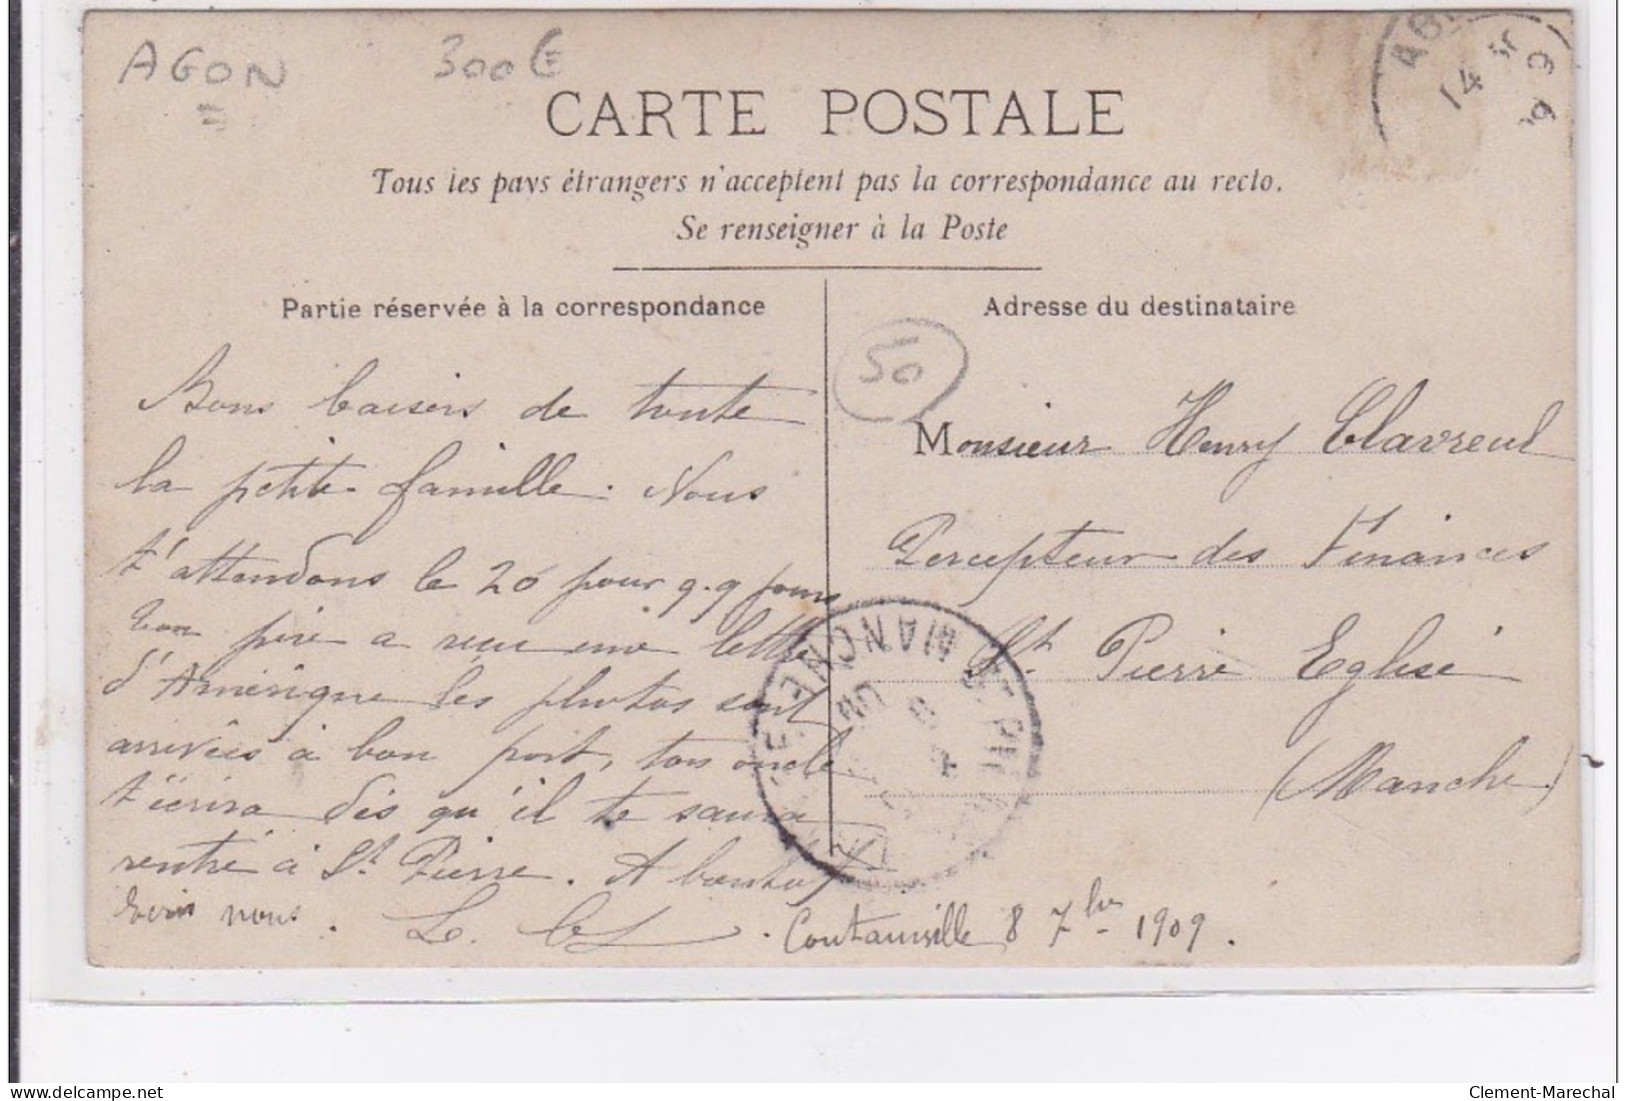 AGON
300€
CARTE POSTALE
Tous les pays étrangers n'acceptent pas la correspondance au recto.
Se renseigner à la Poste
Partie réservée à la correspondance
Bons baisers de toute
la petite famille. Nous
t'attendons le 20 pour q.q jours
ton père a reçu une lettre
d'Amérique les photos sont
arrivées à bon port, ton oncle
t'écrira dès qu'il te saura
rentré à St Pierre. A bientôt
Ecris nous.
Coutainville 8 7bre 1909.
Adresse du destinataire
50
Monsieur Henry Clavreul
Percepteur des Finances
St Pierre Eglise
(Manche)
14
MANCHE
delcampe.net
Clement-Marechal